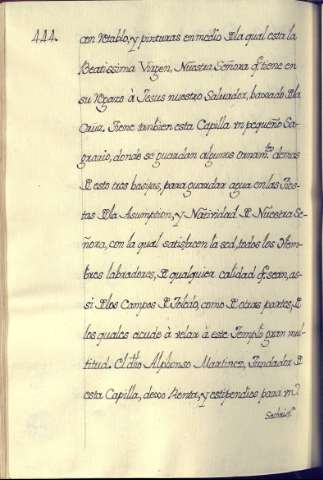 444.
con Retablo, y pinturas en medio D la qual esta la
Beatissima Virgen, Nuestra Señora q̃ tiene en
su Regazo à Jesus nuestro Salvador, baxado D la
Cruz. Tiene tambien esta Capilla vn pequeño Sa-
grario, donde se guardan algunos ornamᵗᵒˢ demas
D esto tres basijas, para guardar agua en las Fies-
tas D la Asumption, y Natividad D Nuestra Se-
ñora, con la qual satisfacen la sed, todos los Hom-
bres labradores, D qualquier calidad q̃ sean, as-
si D los Campos D Toledo, como D otras partes, D
los quales acude à velar à este Templo gran mul-
titud. El dho Alphonso Martinez, Fundador D
esta Capilla, dexo Renta, y estipendios para vn